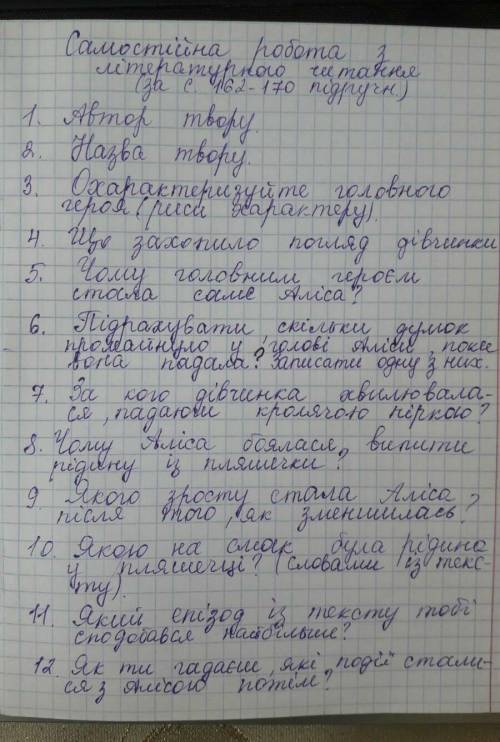 Самостійна робота з
літературного читання
(за с. 162-170 підручн.)
1. Автор твору.
2. Назва твору.
3. Охарактеризуйте головного
героя (риси характеру).
4. Що захопило погляд дівчинки
5. Чому головним героєм
стала саме Аліса?
6. Підрахувати скільки думок
промайнуло у голові Аліси, поки
вона падала? Записати одну з них.
7. За кого дівчинка хвилювала-
ся, падаючи кролячою ніркою?
8. Чому Аліса боялася випити
рідину із пляшечки?
9 Якого зросту стала Аліса
після того, як зменшилась?
10. Якою на смак була рідина
у пляшечці? (словами із текс-
ту).
11. Який епізод із тексту тобі
сподобався найбільше?
12. Як ти гадаєш, які події стали-
ся з Алісою потім?